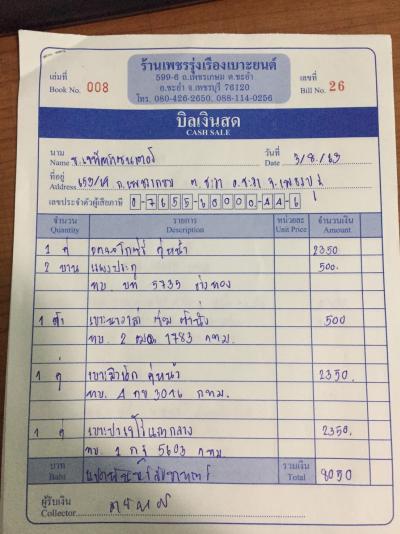 ร้านเพชรรุ่งเรืองเบาะยนต์
599-6 ถ.เพชรเกษม ต.ชะอำ
อ.ชะอำ จ.เพชรบุรี 76120
โทร. 080-426-2650, 088-114-0256
เล่มที่ Book No. 008
เลขที่ Bill No. 26
บิลเงินสด
CASH SALE
นาม Name
วันที่ Date 3/8/63
ที่อยู่ Address ถ.เพชรเกษม ต.ชะอำ อ.ชะอำ จ.เพชรบุรี
เลขประจำตัวผู้เสียภาษี
จำนวน Quantity รายการ Description หน่วยละ Unit Price จำนวนเงิน Amount
1 คู่ คู่หน้า 2350
2 บาน แผงประตู 500.
ทบ. บท 5735 อ่างทอง
1 ตัว เบาะ 500
ทบ. 2 1783 กทม.
1 คู่ คู่หน้า 2350.
ทบ. 3016 กทม.
1 คู่ เบาะปาเจโร่ แถวกลาง 2350.
ทบ 1 กจ 5603 กทม.
บาท Baht แปดพันห้าสิบบาท รวมเงิน Total 8050
ผู้รับเงิน Collector